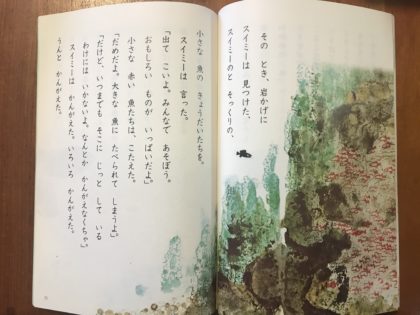 その とき、岩かげに
スイミーは 見つけた、
スイミーのと そっくりの、
小さな 魚の きょうだいたちを。
スイミーは 言った。
「出て こいよ。みんなで あそぼう。
おもしろい ものが いっぱいだよ」
小さな 赤い 魚たちは、こたえた。
「だめだよ。大きな 魚に たべられて しまうよ。」
「だけど、いつまでも そこに じっと して いる
わけには いかないよ。なんとか かんがえなくちゃ。」
スイミーは かんがえた。いろいろ かんがえた。
うんと かんがえた。